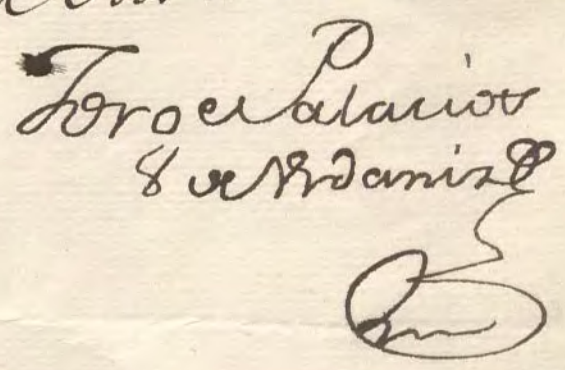 Toro de Palacios
8 de Vrdaniz